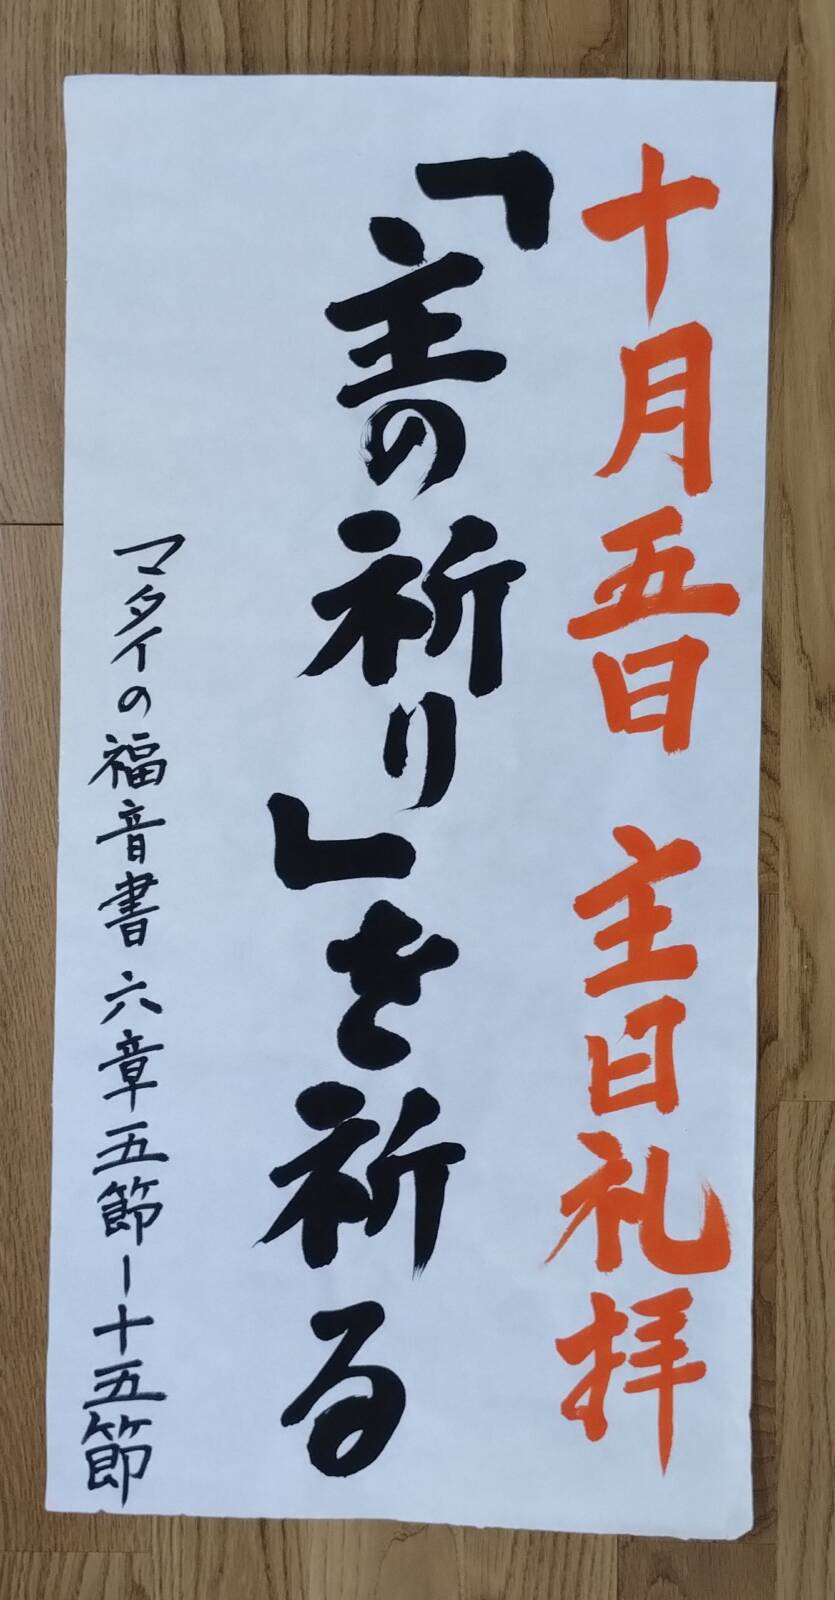 十月五日 主日礼拝
「主の祈り」を祈る
マタイの福音書 六章五節ー十五節